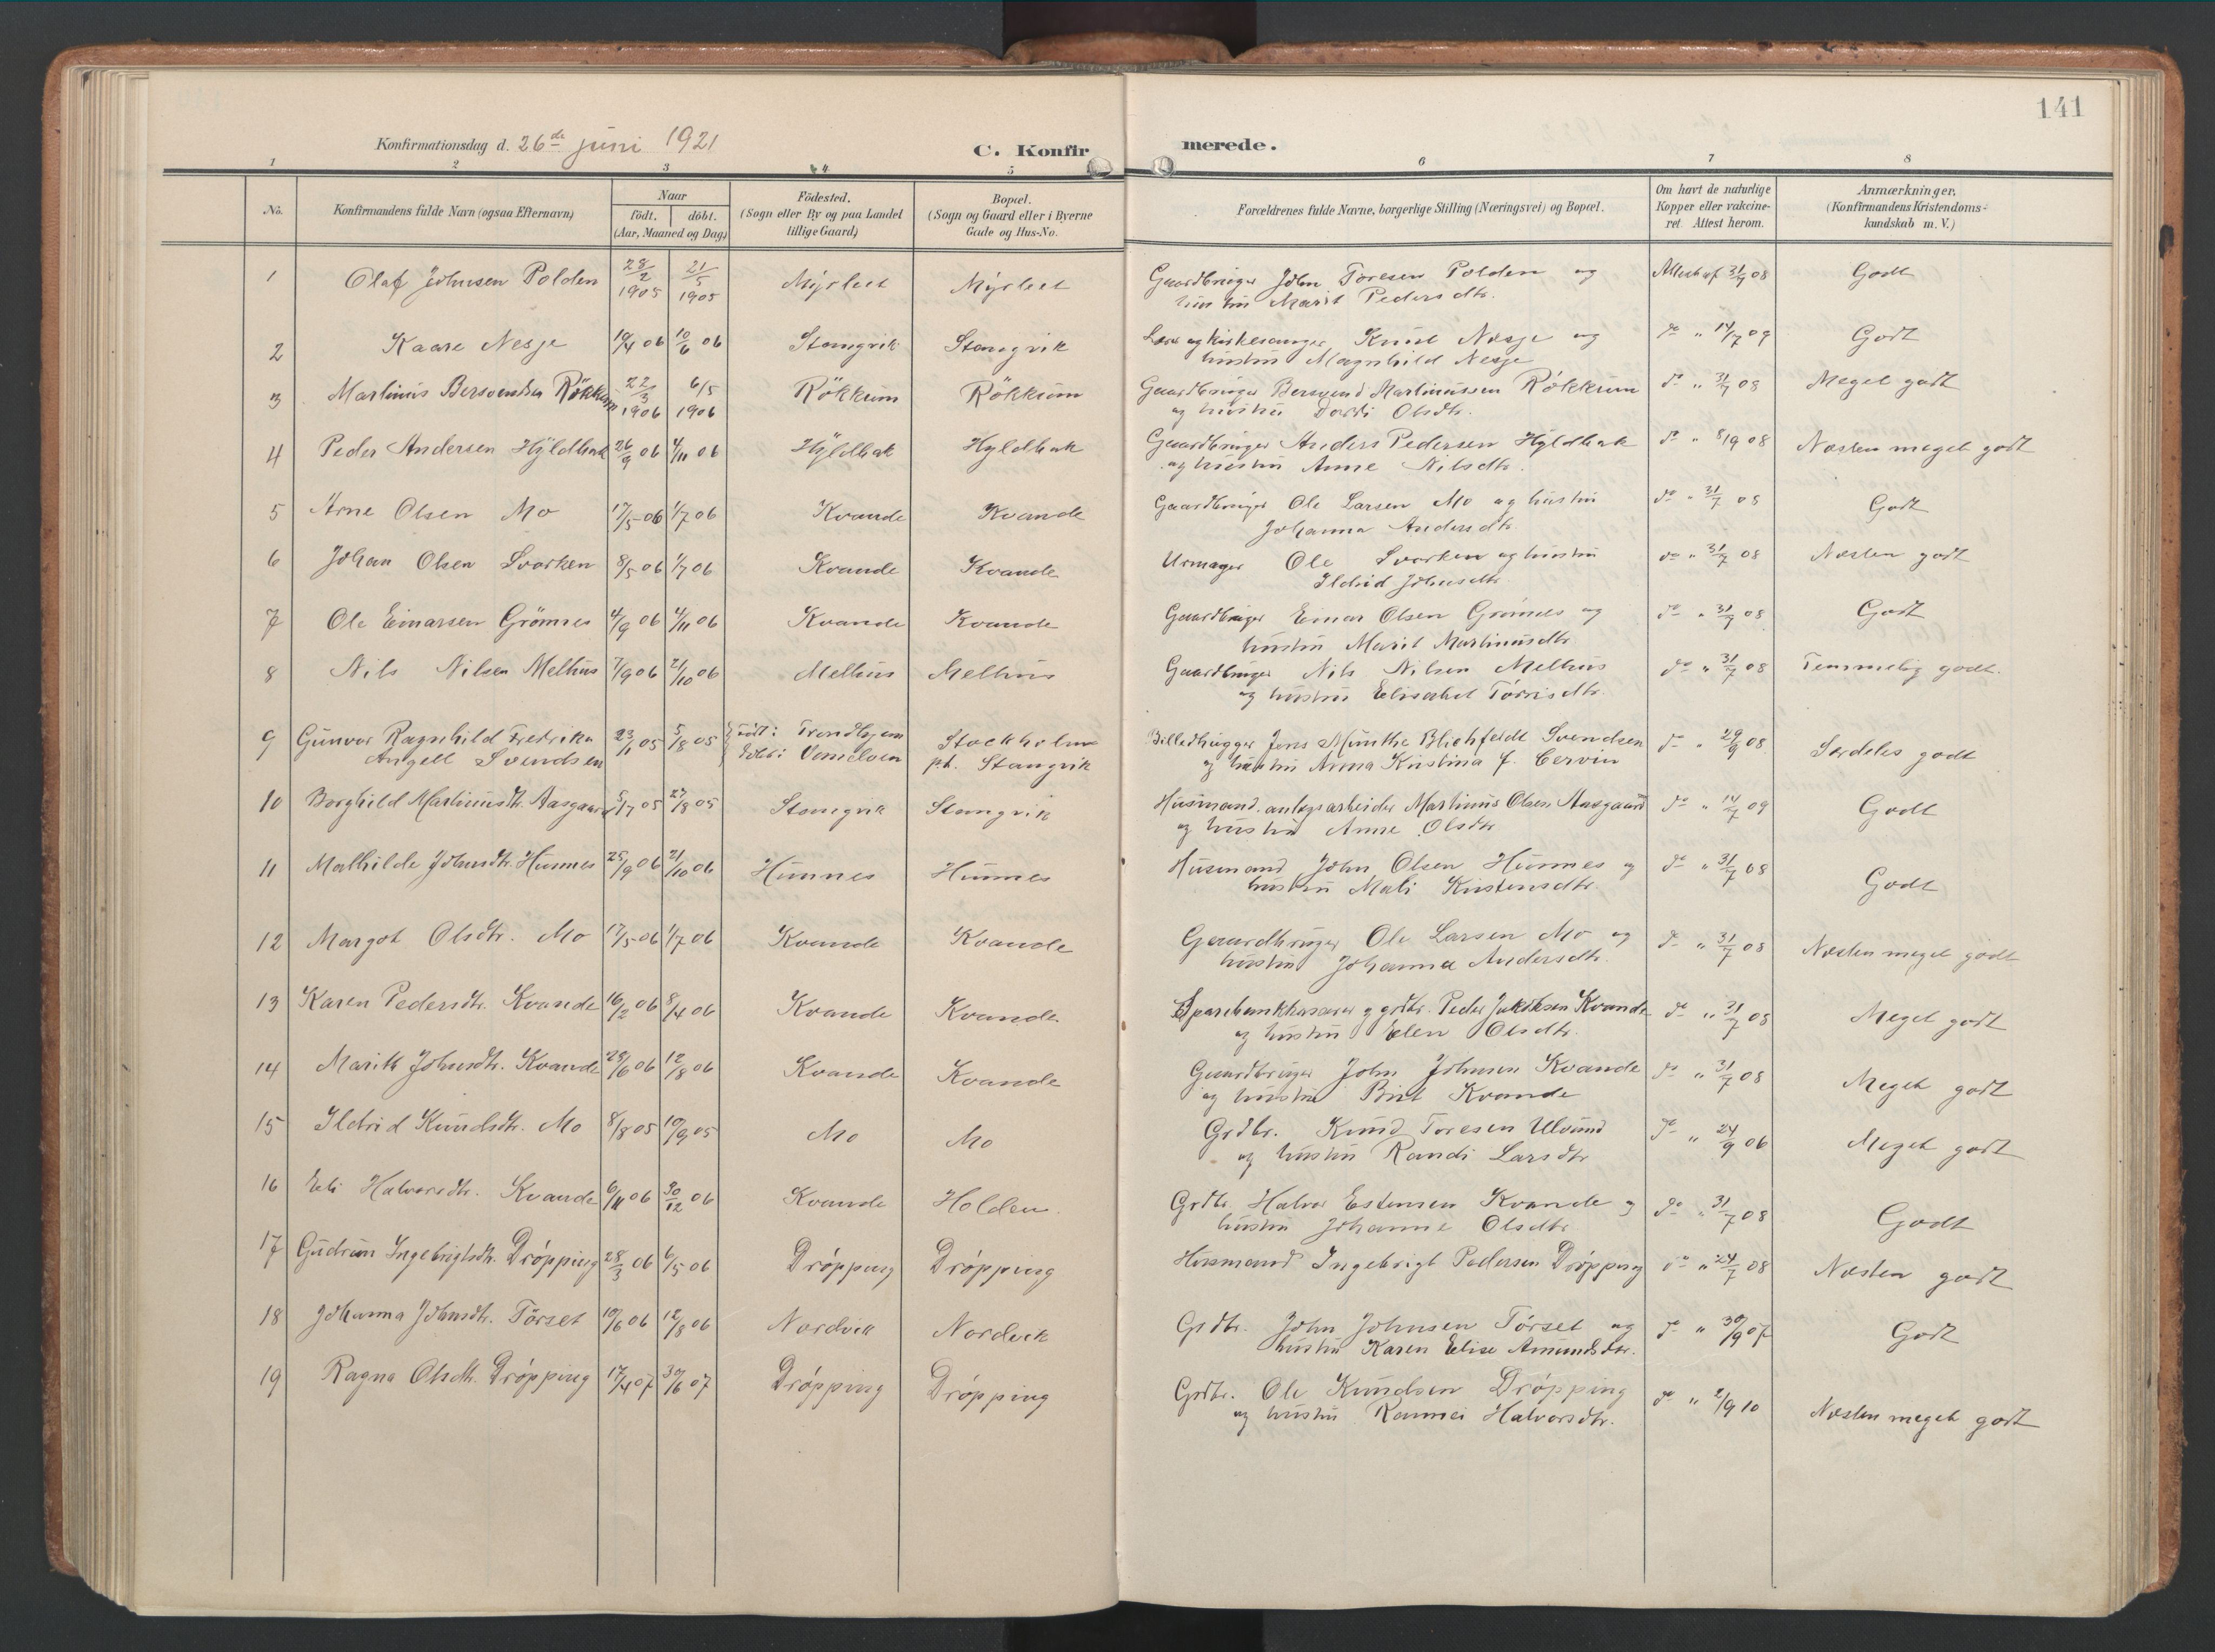 141
Konfirmationsdag d. 26de juni 1921
C. Konfirmerede.
1 2 3 4 5 6 7 8
No. Konfirmandens fulde Navn (ogsaa Efternavn) Naar født. døbt. (Aar, Maaned og Dag) Födested. (Sogn eller By og paa Landet tillige Gaard) Bopæl. (Sogn og Gaard eller i Byerne Gade og Hus-No. Forældrenes fulde Navne, borgerlige Stilling (Næringsvei) og Bopæl. Om havt de naturlige Kopper eller vakcineret. Attest herom. Anmærkninger. (Konfirmandens Kristendomskundskab m. V.)
1 Olaf Johnsen Polden 28/2 1905 21/5 1905 Myrleet Myrleet Gaardbruger John Toresen Polden og Attest af 31/7 08 Godt
hustru Marit Pedersdtr.
2 Kaare Nesje 10/4 06 10/6 06 Stangvik Stangvik Lær. og kirkesanger Knut Nesje og do " 14/7 09 Godt
hustru Magnhild Nesje
3 Martinus Bersvendsen Røkkum 22/3 1906 6/5 1906 Røkkum Røkkum Gaardbruger Bersvend Martinussen Røkkum do " 31/7 08 Meget godt
og hustru Dordi Olsdtr.
4 Peder Andersen Hyldbak 26/9 06 4/11 06 Hyldbak Hyldbak Gaardbruger Anders Pedersen Hyldbak do " 8/9 08 Næsten meget godt
og hustru Anne Nilsdtr.
5 Arne Olsen Mo 17/5 06 1/7 06 Kvande Kvande Gaardbruger Ole Larsen Mo og hustru do " 31/7 08 Godt
Johanna Andersdtr.
6 Johan Olsen Svorken 8/5 06 1/7 06 Kvande Kvande Urmager Ole Svorken og hustru do " 31/7 08 Næsten godt
Ildrid Johnsdtr
7 Ole Einarsen Grömnes 4/9 06 4/11 06 Kvande Kvande Gaardbruger Einar Olsen Grømnes og do " 31/7 08 Godt
hustru Marit Martinusdtr
8 Nils Nilsen Melhus 7/9 06 21/10 06 Melhus Melhus Gaardbruger Nils Nilsen Melhus do " 31/7 08 Temmelig godt.
og hustru Elisabet Torrisdtr.
9 Gunvor Ragnhild Fredrika 23/1 05 5/8 05 født: Trondhjem Stockholm Billedhugger Jens Munthe Blichfeldt Svendsen do " 29/9 08 Særdeles godt
Angell Svendsen pt. Stangvik og hustru Anna Kristina f. Cervin
10 Borghild Martinusdtr. Aasgaard 5/7 05 27/8 05 Stangvik Stangvik Husmand. anlægsarbeider Martinus Olsen Aasgaard do " 14/7 09 Godt
og hustru Anne Olsdtr
11 Mathilde Johnsdtr. Hunnes 25/9 06 21/10 06 Hunnes Hunnes Husmand John Olsen Hunnes og do " 31/7 08 Godt
hustru Mali Kristensdtr.
12 Margot Olsdtr. Mo 17/5 06 1/7 06 Kvande Kvande Gaardbruger Ole Larsen Mo og do " 31/7 08 Næsten meget godt
hustru Johanna Andersdtr.
13 Karen Pedersdtr. Kvande 16/2 06 8/4 06 Kvande Kvande. Sparebankkasserer og grdbr. Peder Jakobsen Kvande do " 31/7 08 Meget godt
og hustru Elen Olsdtr.
14 Marith Johnsdtr. Kvande 28/6 06 12/8 06 Kvande Kvande Gaardbruger John Johnsen Kvande do " 31/7 08 Meget godt
og hustru Birit Kvande
15 Ildrid Knudsdtr. Mo 8/8 05 10/9 05 Mo Mo Grdbr. Knud Toresen Ulvund do " 24/9 06 Meget godt
og hustru Randi Larsdtr
16 Eli Halvorsdtr. Kvande 6/11 06 30/12 06 Kvande Holden. Grdbr. Halvor Estensen Kvande og do " 31/7 08 Godt
hustru Johanne Olsdtr
17 Gudrun Ingebrigtsdtr. Drøpping 28/3 06 6/5 06 Drøpping Drøpping Husmand Ingebrigt Pedersen Drøpping do " 24/7 08 Næsten godt
18 Johanna Johnsdtr. Törset 10/6 06 12/8 06 Nordvik Nordvik Grdbr. John Johnsen Tørset og do " 30/9 07 Godt
hustru Karen Elise Amundsdtr.
19 Ragna Olsdtr. Drøpping 17/4 07 30/6 07 Drøpping Drøpping Grdbr. Ole Knudsen Drøpping do " 2/9 10 Næsten meget godt
og hustru Rannei Halvorsdtr.